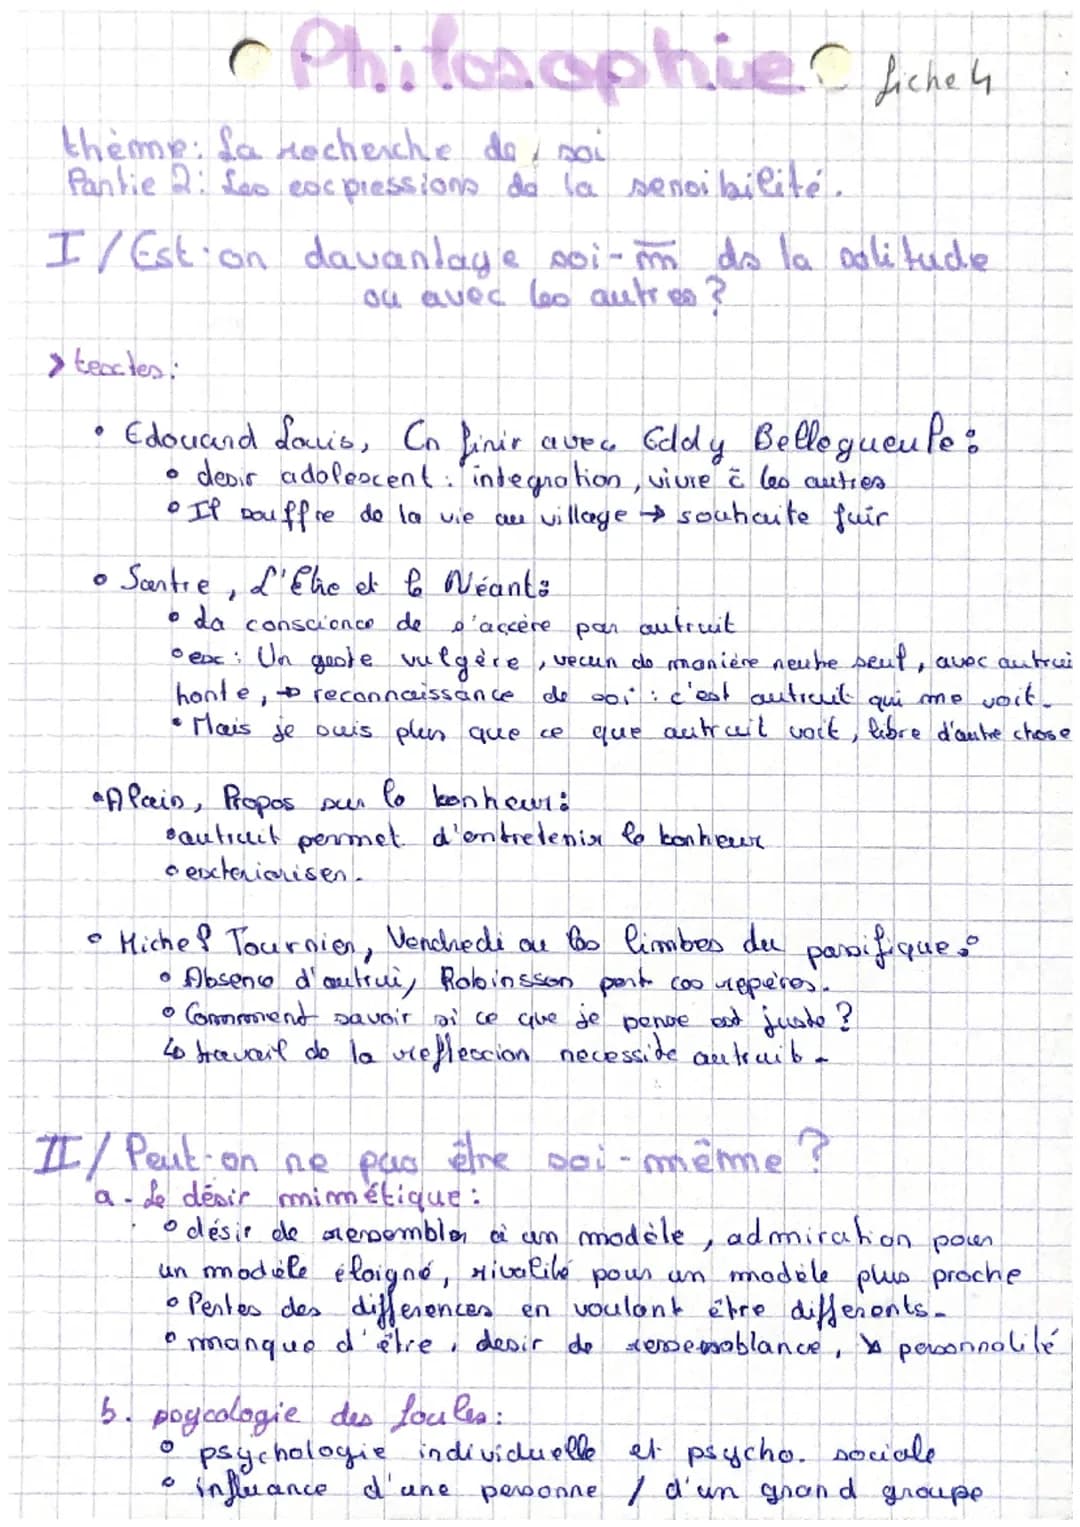 Philosophie fiche 4
thème: La recherche de soi
Partie 2: Les expressions de la sensibilité.
I/ Est-on davantage soi-m̄ ds la solitude
ou avec les autres ?
> textes:
• Edouard Louis, En finir avec Eddy Bellegueule:
• desir adolescent : integration, vivre c̄ les autres
• Il souffre de la vie au village → souhaite fuir
• Sartre, L'Être et le Néant:
• La conscience de s'accère par autruit
• ex : Un geste vulgère, vecun de manière neutre seul, avec autrui
honte, → reconnaissance de soi : c'est autruit qui me voit.
• Mais je suis plus que ce que autruit voit, libre d'autre chose
• Alain, Propos sur le bonheur:
• autruit permet d'entretenir le bonheur
• exteriorisen.
• Michel Tournier, Vendredi ou les limbes du passifique:
• Absence d'autrui, Robinsson pert ces repères.
• Comment savoir si ce que je pense est juste ?
↳ travail de la reflexion necesside autruit.
II/ Peut-on ne pas être soi-même ?
a - Le désir mimétique :
• désir de ressembler à un modèle, admiration pour
un modèle éloigné, rivalité pour un modèle plus proche
• Pertes des differences en voulant être differents.
• manque d'être, desir de ressemblance, ↘ personnalité
b. psycologie des foules :
• psychologie individuelle et psycho. sociale
• influance d'une personne / d'un grand groupe